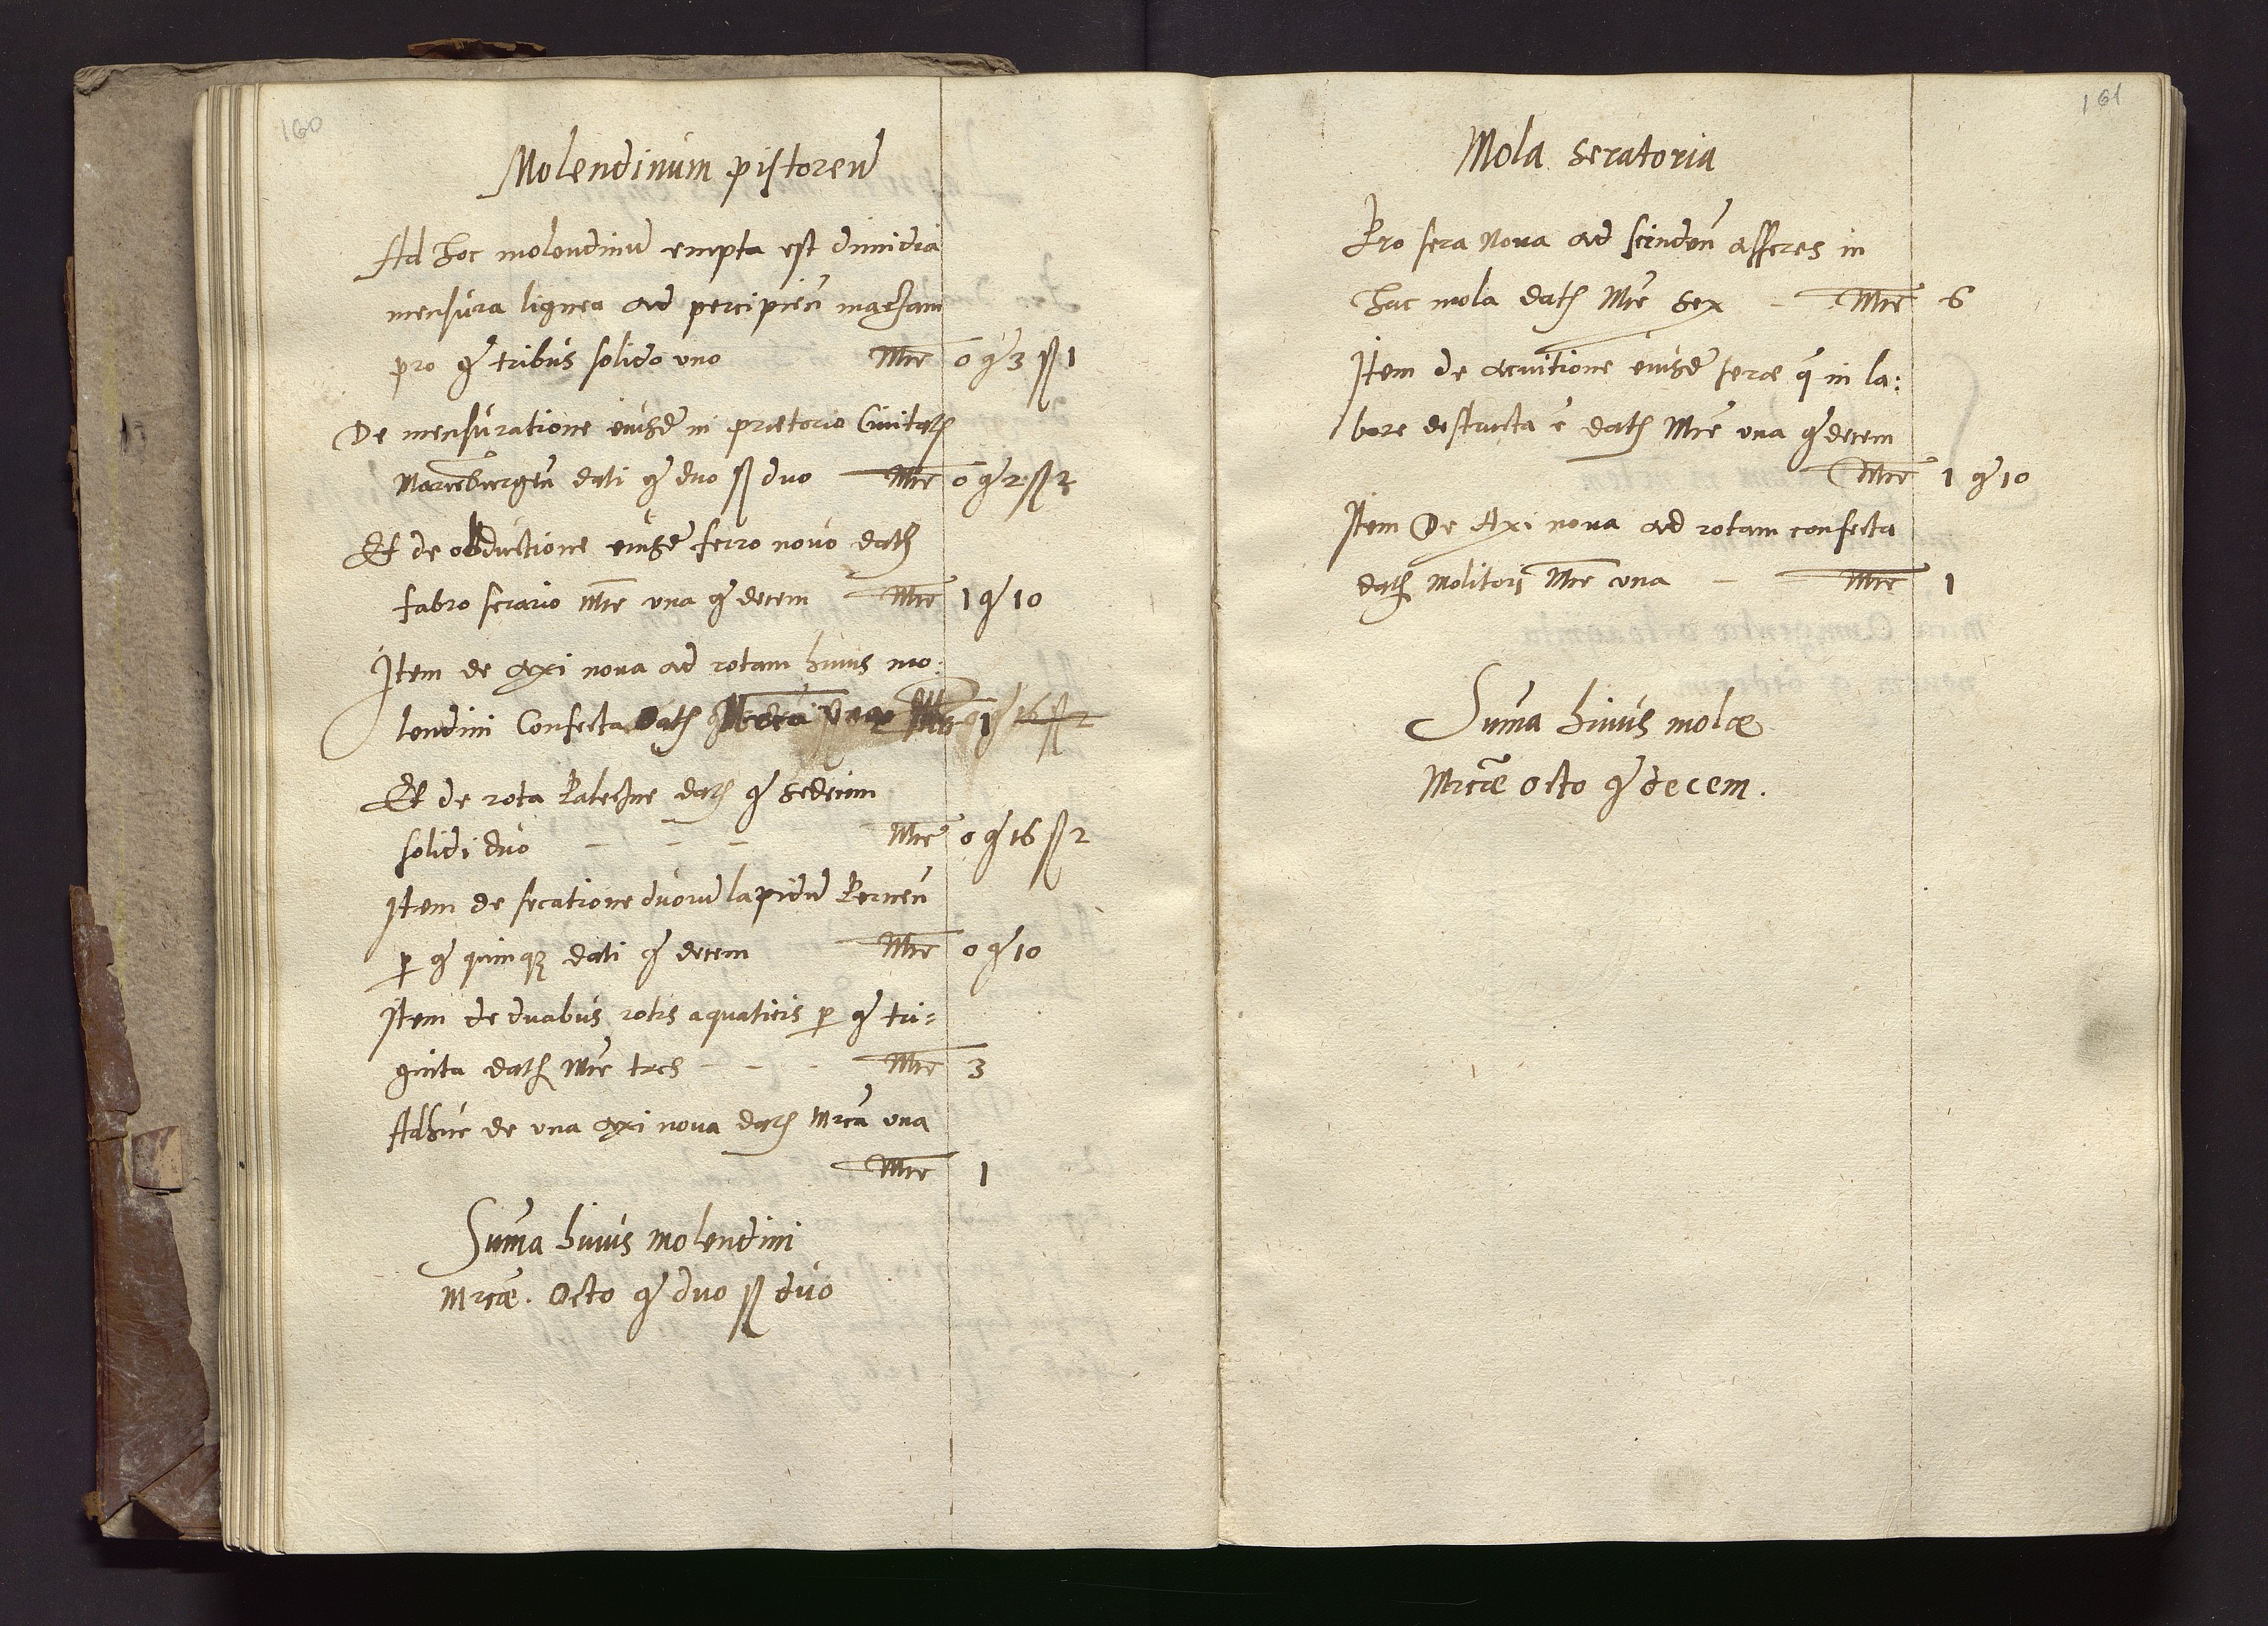 160
Molendinum pistoreũ
Ad hoc molendinũ empta est dimidia
mensura lignea ad percipień maczam
pro gͬ tribus solido uno Mrc̄ 0 gͬ 3 ß 1
De mensuratione eiusdē in prætorio Ciuitatꝭ
Marieburgeñ dati gͬ duo ß duo Mrc̄ 0 gͬ 2 ß 2
Et de obductione eiusdē ferro novo datꝭ
fabro serario Mrc̄ una gͬ decem Mrc̄ 1 gͬ 10
Item de axi nova ad rotam huius mo:
lendini Confecta datꝭ Mrca Una Mrc̄ 1 gͬ 16 ß 2
Et de rota Paleczne datꝭ gͬ sedecim
solidi duo - - - Mrc̄ 0 gͬ 16 ß 2
Item de secatione duorũ lapidũ
ꝑ gͬ quinqꝫ dati gͬ decem Mrc̄ 0 gͬ 10
Item de duabus rotis aquaticis ꝑ gͬ tri=
ginta datꝭ Mrc̄ tres - - - Mrc̄ 3
Adhuc de una axi nova datꝭ Mrca una
Mrc̄ 1
Suma huius molendini
Mrcæ. Octo gͬ duo ß duo
161
Mola seratoria
Pro sera Nova ad scinden̄ asseres in
hac mola datꝭ Mrc̄ sex - Mrc̄ 6
Item de acuitione eiusdē seræ q̄ in la:
bore destructa ē datꝭ Mrc̄ una gͬ decem
Mrc̄ 1 gͬ 10
Item De Axi nova ad rotam confecta
datꝭ Molitori Mrc̄ una - Mrc̄ 1
Suma huius molæ
Mrcæ octo gͬ decem.